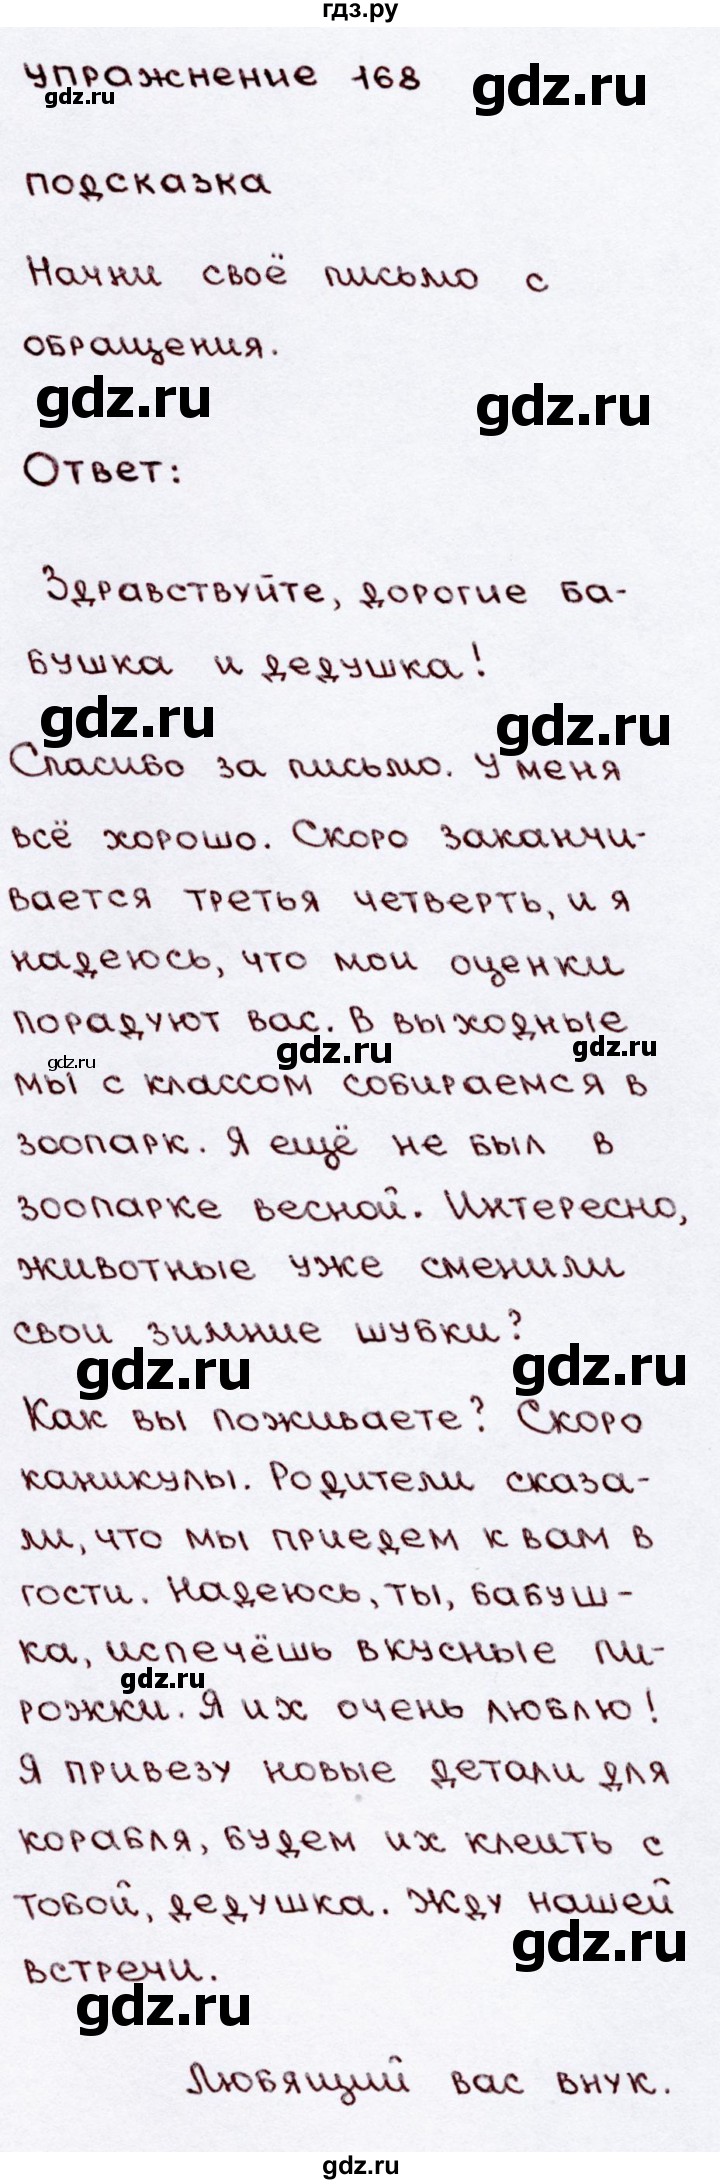 гдз.ру
упражнение 168
gdz.ru gdz.ru
подсказка
Начни своё письмо с
обращения.
gdz.ru gdz.ru
Ответ:
Здравствуйте, дорогие ба-
бушка и дедушка!
gdz.ru gdz.ru
Спасибо за письмо. У меня
всё хорошо. Скоро заканчи-
вается третья четверть, и я
надеюсь, что мои оценки
порадуют вас. В выходные
gdz.ru gdz.ru gdz.ru
мы с классом собираемся в
зоопарк. Я ещё не был в
зоопарке весной. Интересно,
животные уже сменили
свои зимние шубки?
gdz.ru gdz.ru
Как вы поживаете? Скоро
каникулы. Родители сказа-
ли, что мы приедем к вам в
гости. Надеюсь, ты, бабуш-
ка, испечёшь вкусные пи-
gdz.ru
рожки. Я их очень люблю!
Я привезу новые детали для
корабля, будем их клеить с
тобой, дедушка. Жду нашей
встречи.
gdz.ru gdz.ru
Любящий вас внук.
gdz.ru